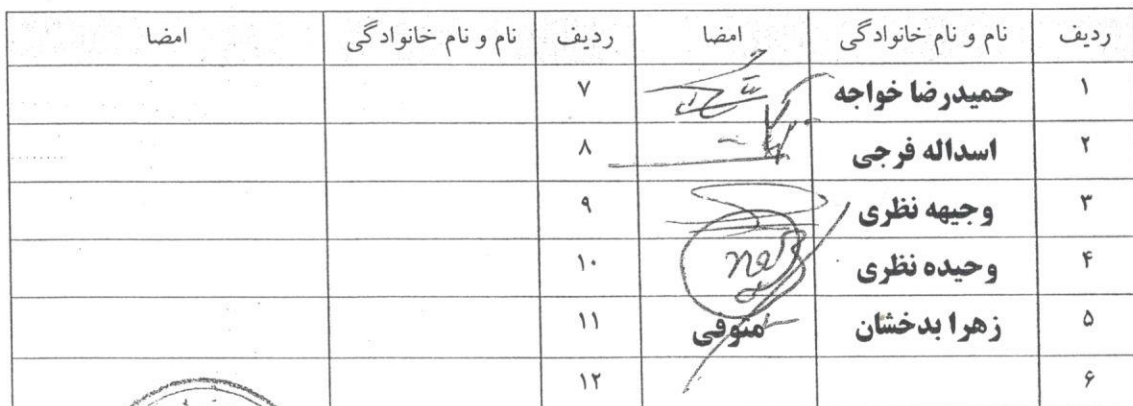 ردیف نام و نام خانوادگی امضا ردیف نام و نام خانوادگی امضا
۱ حمیدرضا خواجه ۷
۲ اسداله فرجی ۸
۳ وجیهه نظری ۹
۴ وحیده نظری ۱۰
۵ زهرا بدخشان متوفی ۱۱
۶ ۱۲